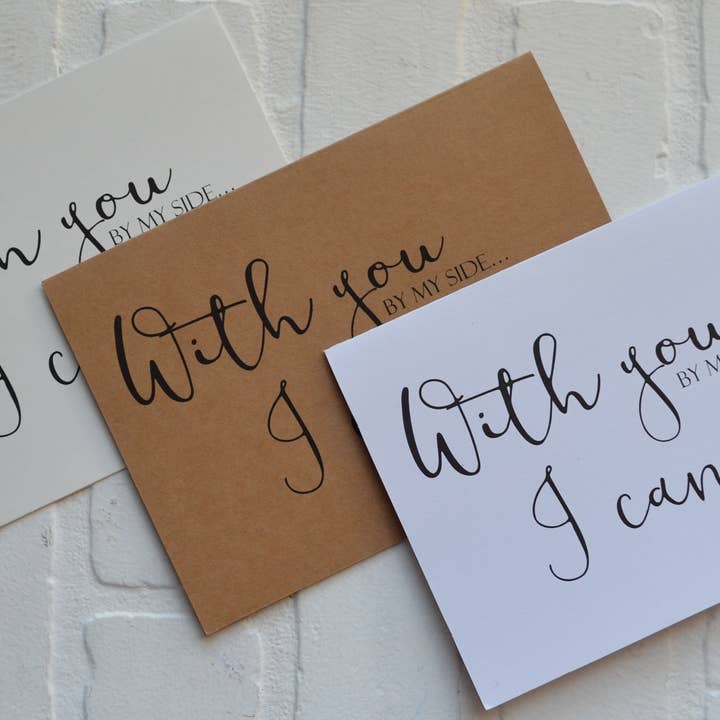 n you
BY MY SIDE...
I c
With you
BY MY SIDE...
I
With you
BY M
I can